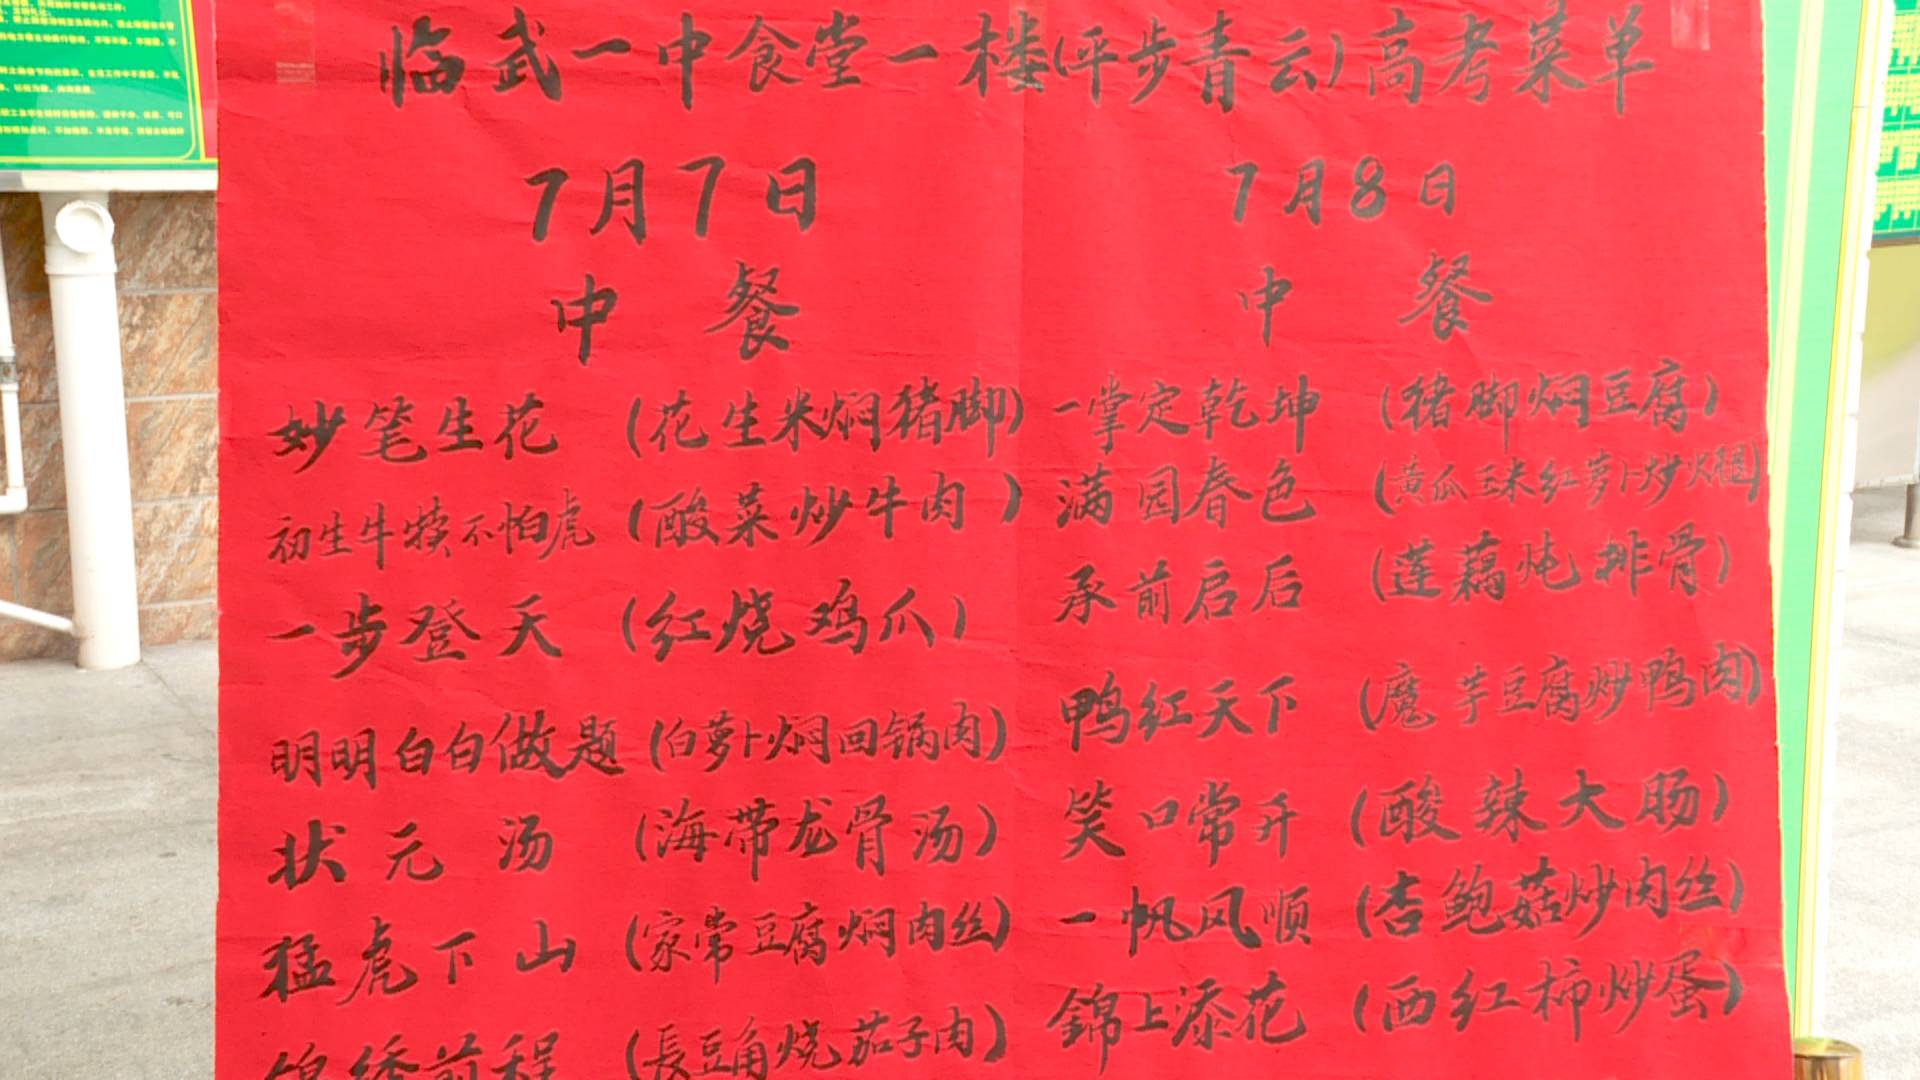 临武一中食堂一楼(平步青云)高考菜单
7月7日
中餐
妙笔生花 (花生米焖猪脚)
初生牛犊不怕虎 (酸菜炒牛肉)
一步登天 (红烧鸡爪)
明明白白做题 (白萝卜焖回锅肉)
状元汤 (海带龙骨汤)
猛虎下山 (家常豆腐焖肉丝)
锦绣前程 (長豆角烧茄子肉)
7月8日
中餐
一掌定乾坤 (猪脚焖豆腐)
满园春色 (黄瓜玉米红萝卜炒火腿)
承前启后 (莲藕炖排骨)
鸭红天下 (魔芋豆腐炒鸭肉)
笑口常开 (酸辣大肠)
一帆风顺 (杏鲍菇炒肉丝)
錦上添花 (西红柿炒蛋)